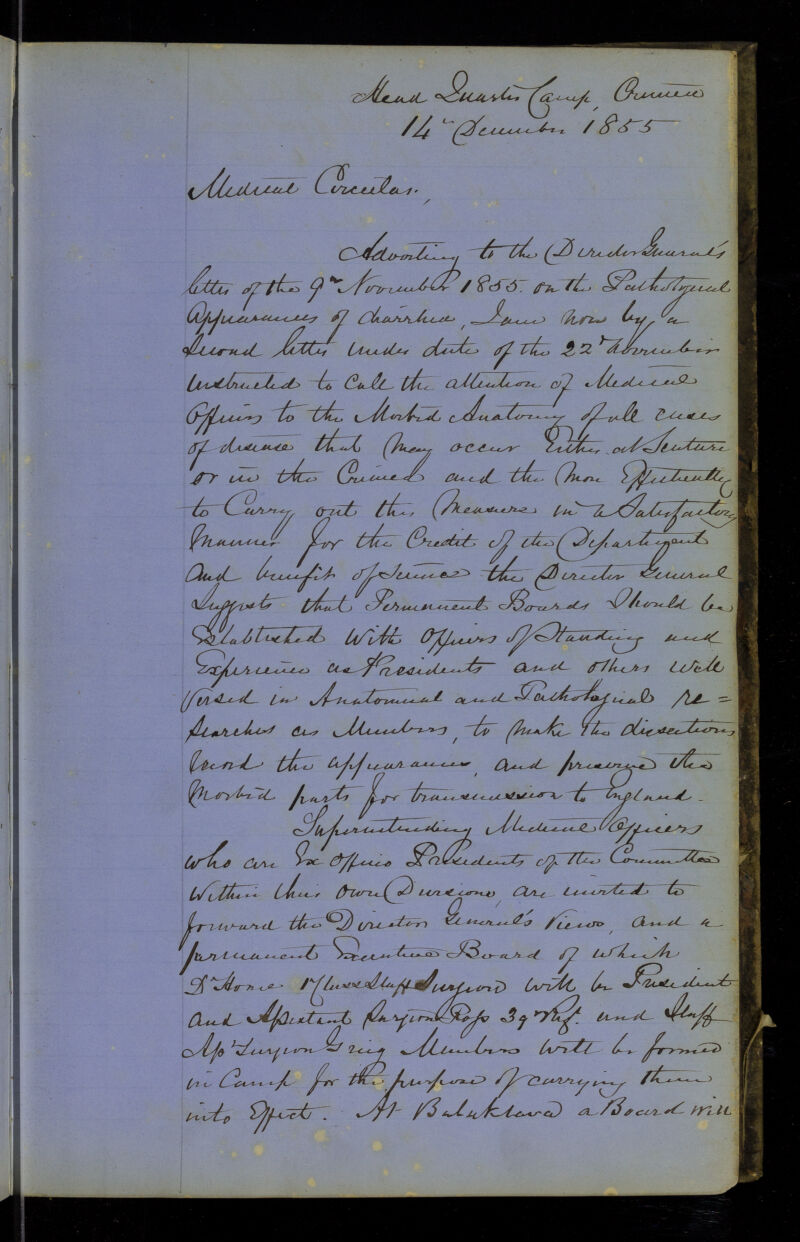 Head Quarters Camp, Crimea
14th December 1855
Medical Circular.,
Adverting to the Director General's
letter of the 9th November 1855. on the Pathological
Appearances of diarrhœa, I am now by a
Second letter under date of the 22d November
instructed to call the attention of Medical
Officers to the Morbid Anatomy of all cases
of disease that may occur Either at Scutari
or in the Crimea and the more Efficiently
to Carry out this Measure in a Satisfactory
Manner for the Credit of the Department
and benefit of Science the Director General
Suggests that Permanent Boards Should be
Established with Officers of Standing and
Experience as Presidents and others well
versed in Anatomical and Pathological re=
searches as Members, to make the dissections
record the appearances, and preserve the
Morbid parts for transmission to England.
Superintending Medical Officers
who are Ex Officio Presidents of the Committee
within their own Divisions, are invited to
forward the Director General's Views, and a
permanent Executive Board of which
Dr Home 1st Class Staff Surgeon will be President
and Assistant Surgeon 39th Regt. and Staff
Asst Surgeon Greig Members will be formed
in Camp for the purpose of carrying them
into Effect. At Balaklava a Board will